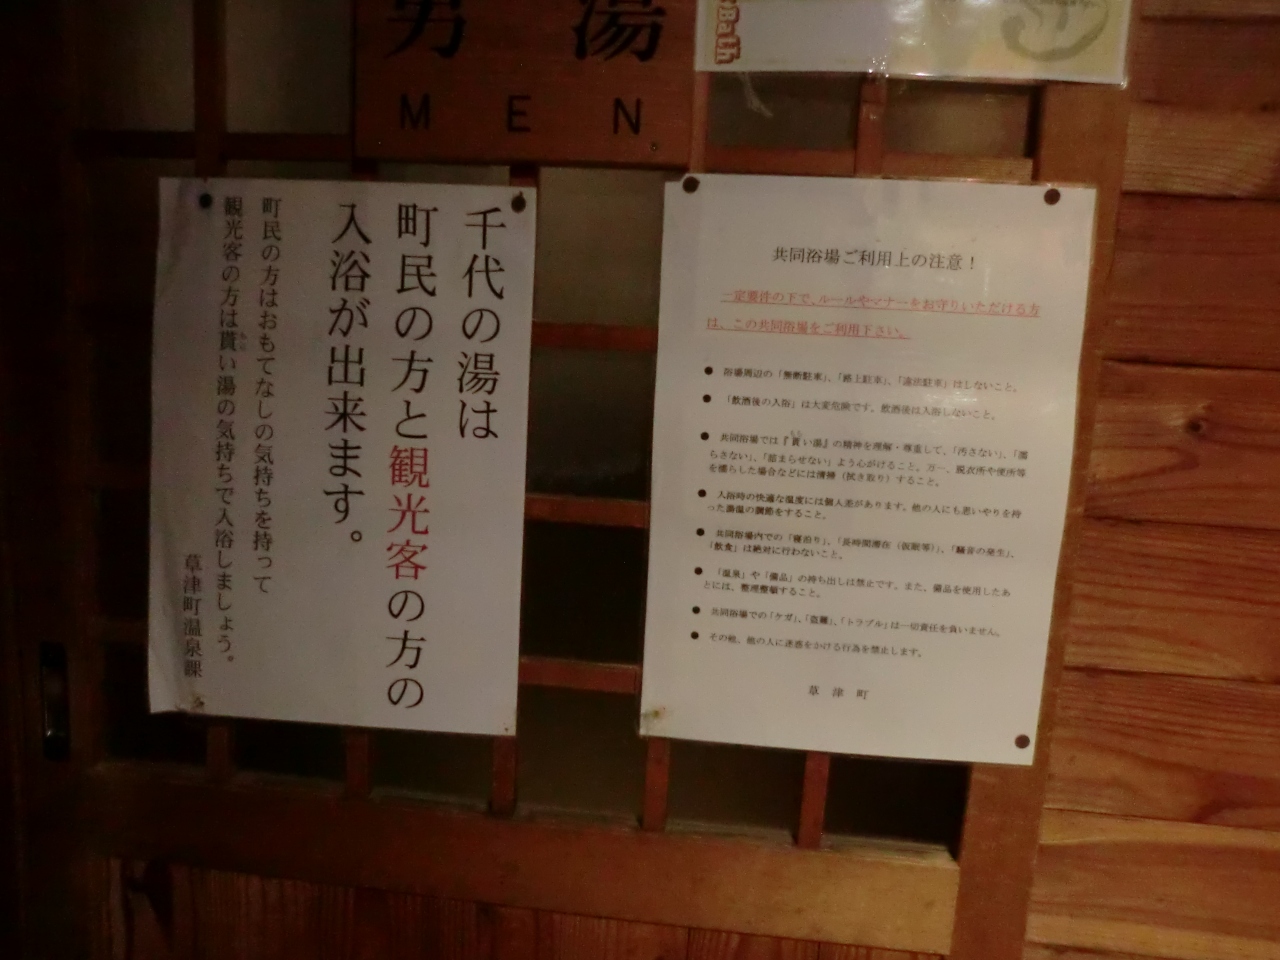 男 湯
MEN
Bath
千代の湯は
町民の方と観光客の方の
入浴が出来ます。
町民の方はおもてなしの気持ちを持って
観光客の方は貰い湯の気持ちで入浴しましょう。
草津町温泉課
共同浴場ご利用上の注意！
一定要件の下で、ルールやマナーをお守りいただける方
は、この共同浴場をご利用下さい。
● 浴場周辺の「無断駐車」、「路上駐車」、「迷惑駐車」はしないこと。
● 「飲酒後の入浴」は大変危険です。飲酒後は入浴しないこと。
● 共同浴場では『貰い湯』の精神を理解・尊重して、「汚さない」、「濡
らさない」、「詰まらせない」よう心がけること。万一、脱衣所や便所等
を濡らした場合などには清掃（拭き取り）すること。
● 入浴時の快適な温度には個人差があります。他の人にも思いやりを持
った湯温の調節をすること。
● 共同浴場内での「寝泊り」、「長時間滞在（仮眠等）」、「騒音の発生」、
「飲食」は絶対に行わないこと。
● 「温泉」や「備品」の持ち出しは禁止です。また、備品を使用したあ
とには、整理整頓すること。
● 共同浴場での「ケガ」、「盗難」、「トラブル」は一切責任を負いません。
● その他、他の人に迷惑をかける行為を禁止します。
草 津 町